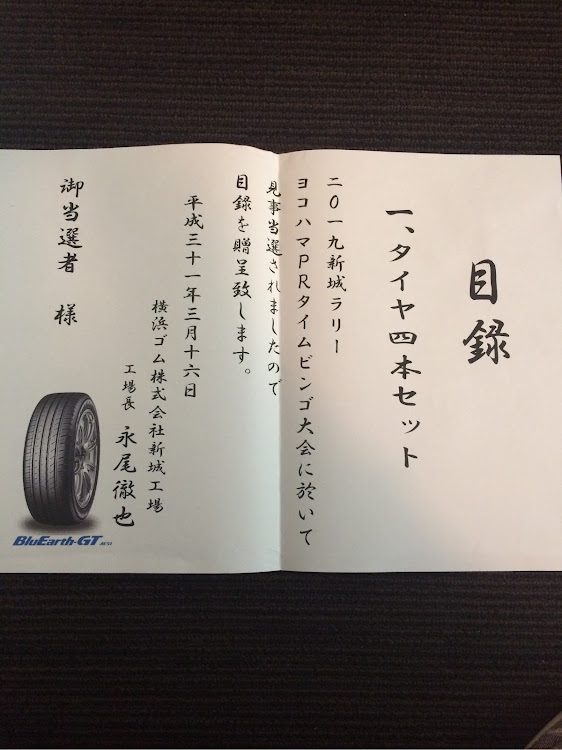 目録
一、タイヤ四本セット
二〇一九新城ラリー
ヨコハマPRタイムビンゴ大会に於いて
見事当選されましたので
目録を贈呈致します。
平成三十一年三月十六日
横浜ゴム株式会社新城工場
工場長 永尾徹也
御当選者 様
BluEarth-GT AE51